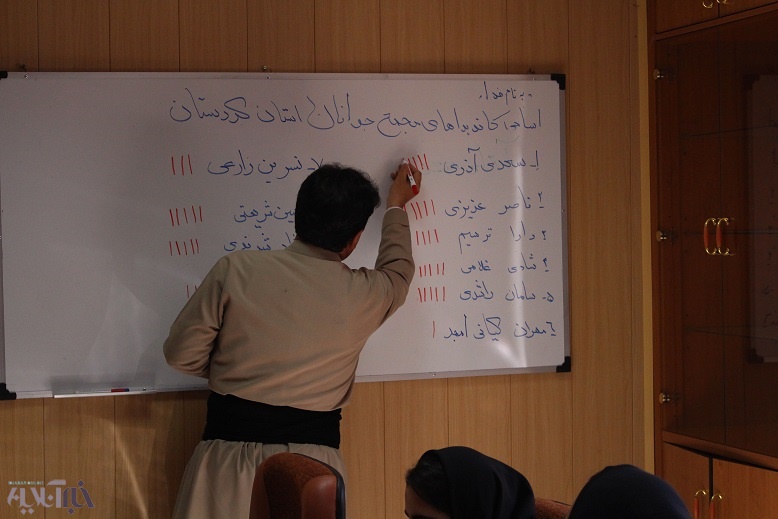 به نام خدا
اسامی کاندیداهای مجمع جوانان استان کردستان
۱ـ سعدی آذری
۲ ناصر عزیزی
۳ دارا ترمیم
۴ شادی غلامی
۵ـ سامان راشدی
۶ مهران کیانی
۷ـ نسرین زارعی
شریعتی
خبرآنلاین